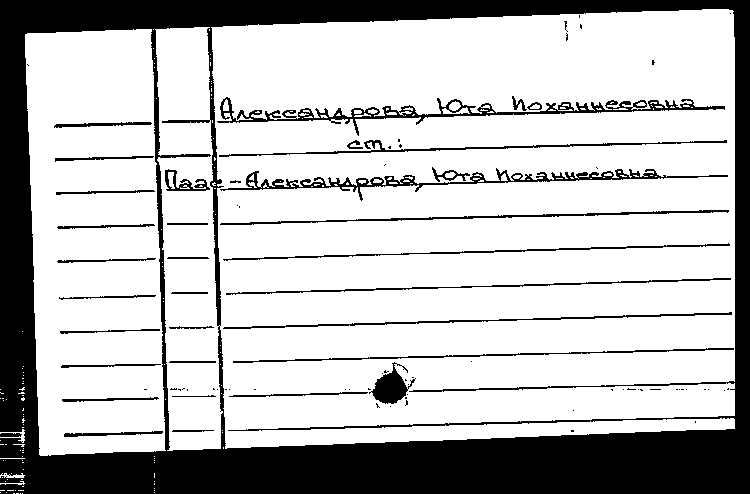 Александрова, Юта Йоханнесовна
ст.:
Паас-Александрова, Юта Йоханнесовна.